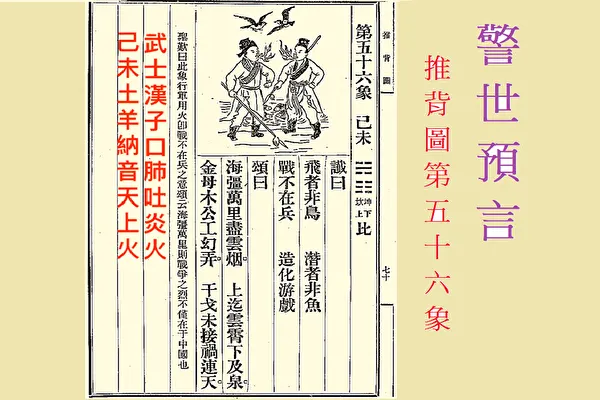 警世預言
推背圖第五十六象
推背圖
七十
第五十六象 己未 坤下坎上 比
讖曰
飛者非鳥 潛者非魚
戰不在兵 造化游戲
頌曰
海疆萬里盡雲烟。 上迄雲霄下及泉。
金母木公工幻弄。 干戈未接禍連天。
聖歎曰此象行軍用火卽戰不在兵之意頌云海疆萬里則戰爭之烈不僅在于中國也
武士漢子口肺吐炎火
己未土羊納音天上火